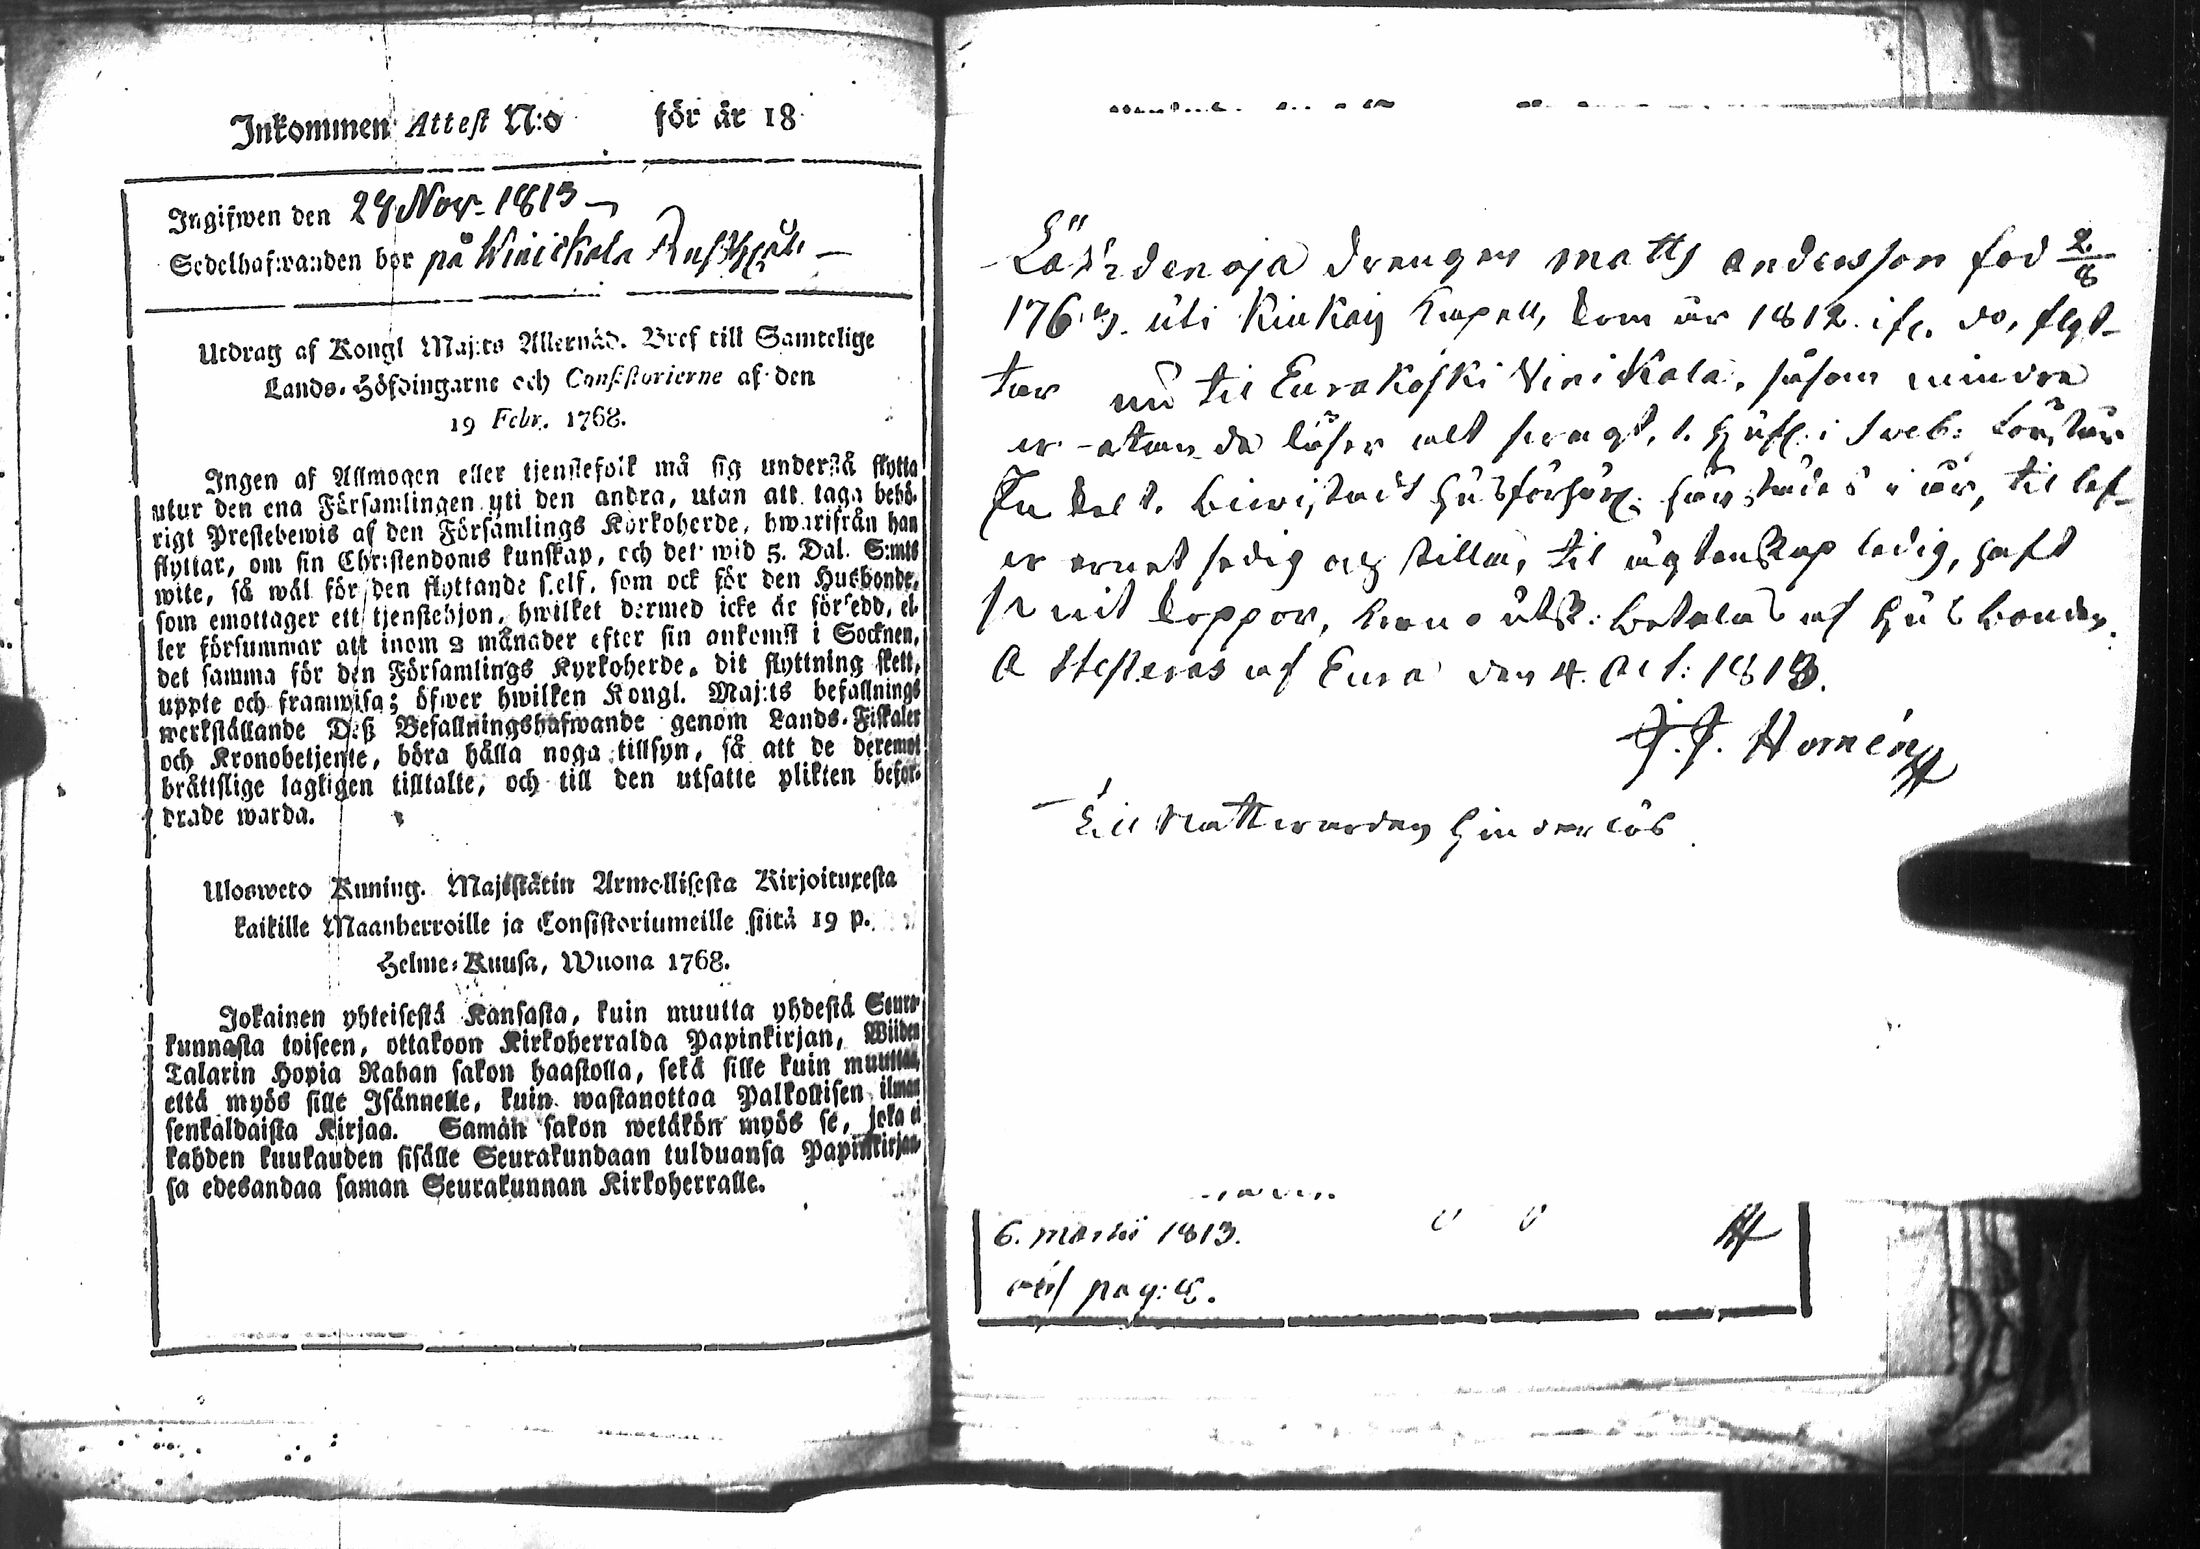 Inkommen Attest N:o för år 18
Ingifwen den 28 Nov. 1813
Sedelhafwanden bor på Winikkala Rusthåll
Utdrag af Kongl Maj:ts Allernåd. Bref till Samtelige
Lands-Höfdingarne och Consistorierne af den
19 Febr. 1768.
Ingen af Allmogen eller tjenstefolk må sig understå flytta
utur den ena Församlingen uti den andra, utan att taga behö-
rigt Prestebewis af den Församlings Kÿrkoherde, hwarifrån han
flyttar, om sin Christendoms kunskap, och det wid 5. Dal. S:mts
wite, så wäl för den flyttande self, som ock för den Husbonde,
som emottager ett tjenstehjon, hwilket dermed icke är försedd, el-
ler försummar att inom 2 månader efter sin ankomst i Socknen,
det samma för den Församlings Kyrkoherde, dit flyttning skett,
uppte och framwisa; öfwer hwilken Kongl. Maj:ts befallnings
werkställande Deß Befallningshafwande genom Lands-Fiskaler
och Kronobetjente, böra hålla noga tillsyn, så att de deremot
bråttslige lagligen tilltalte, och till den utsatte plikten befor-
drade warda.
Ulosweto Kuning. Majestätin Armollisesta Kirjoituxesta
kaikille Maanherroille ja Consistoriumeille siitä 19 p.
Helme-Kuusa, Wuona 1768.
Jokainen yhteisestä Kansasta, kuin muutta yhdestä Seura-
kunnasta toiseen, ottakoon Kirkoherralda Papinkirjan, Wiiden
Talarin Hopia Rahan sakon haastolla, sekä sille kuin muuttaa,
että myös sille Isännelle, kuin wastanottaa Palkollisen ilman
senkaldaista Kirjaa. Samán sakon wetäkön myös se, joka ei
kahden kuukauden sisälle Seurakundaan tulduansa Papinkirjan-
sa edesandaa saman Seurakunnan Kirkoherralle.
drengen Matts Andersson född 2/8
1763. uti Kiukais Kapell, kom år 1812. flyt-
tar nu til Eurakoski Vinikkala, såsom mindre
vetande läser alt svagt, i Sveb: förstår
En del. bewistadt husförhör härstädes i år, til lef-
vernet sedig och stilla, til ägtenskap ledig, haft
koppor, krono utsk: betalas af husbonden.
Attesteras af Eura den 4. Oct: 1813.
J. J. Homén
Till Nattvarden hinderlös.
6. Martii 1813.
pag: 4.